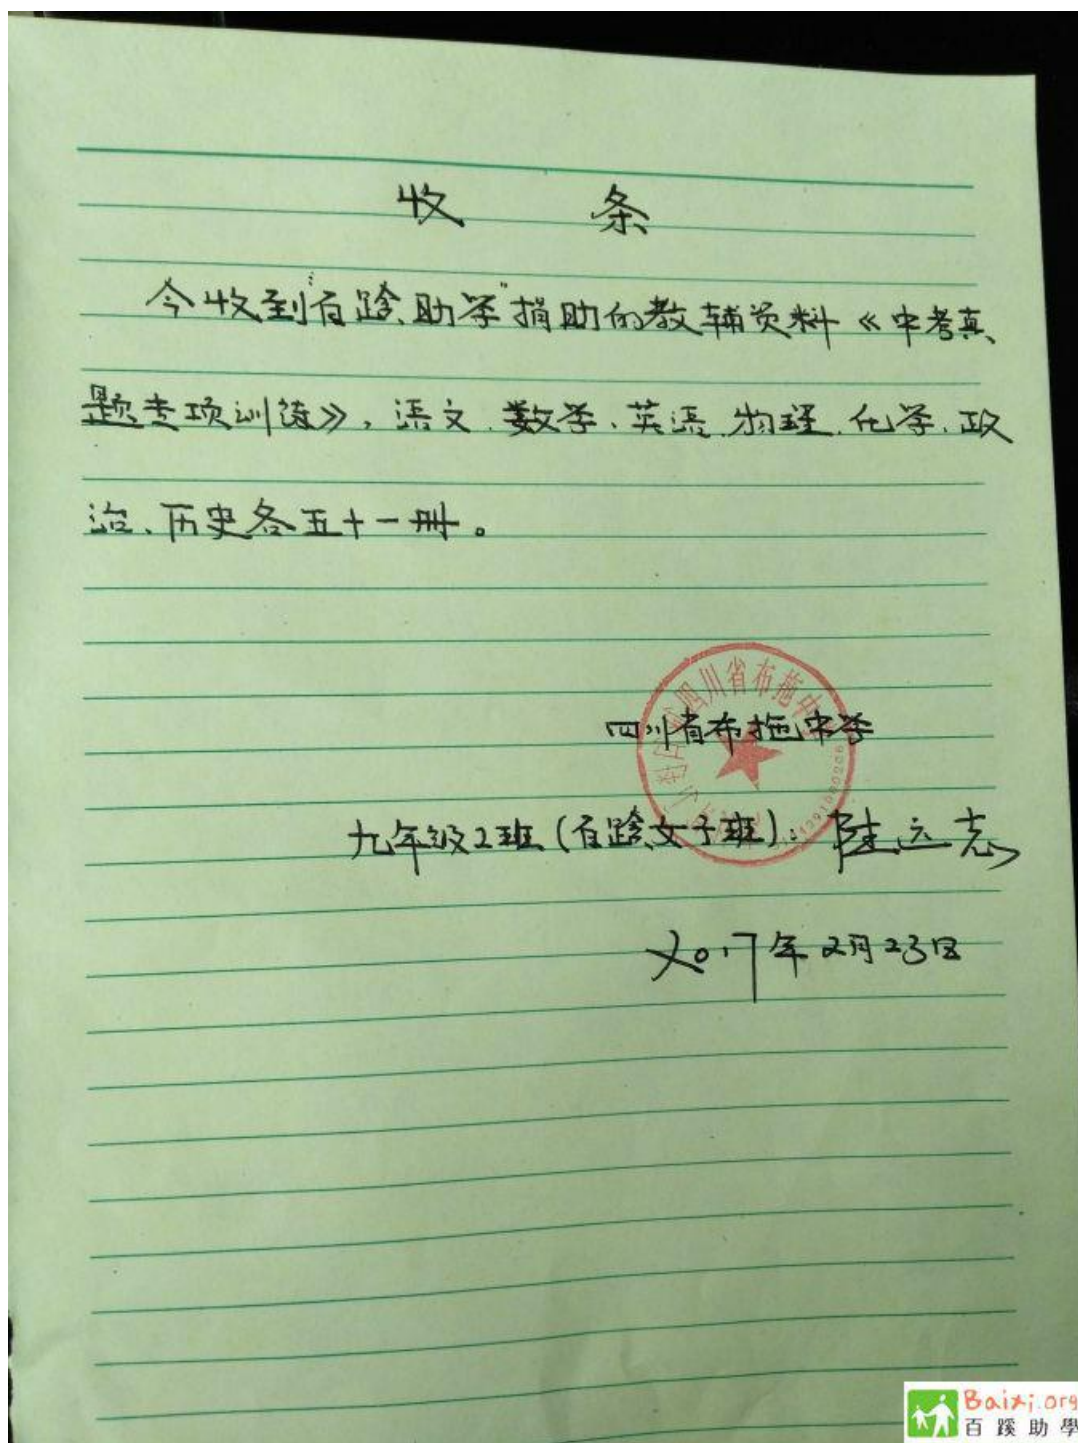 收 条
今收到“百蹊助学”捐助的教辅资料《中考真
题专项训练》，语文、数学、英语、物理、化学、政
治、历史各五十一册。
四川省布拖中学
四川省布拖中学
九年级2班（百蹊女子班）：陆远志
2017年2月23日
Baixi.org
百蹊助學